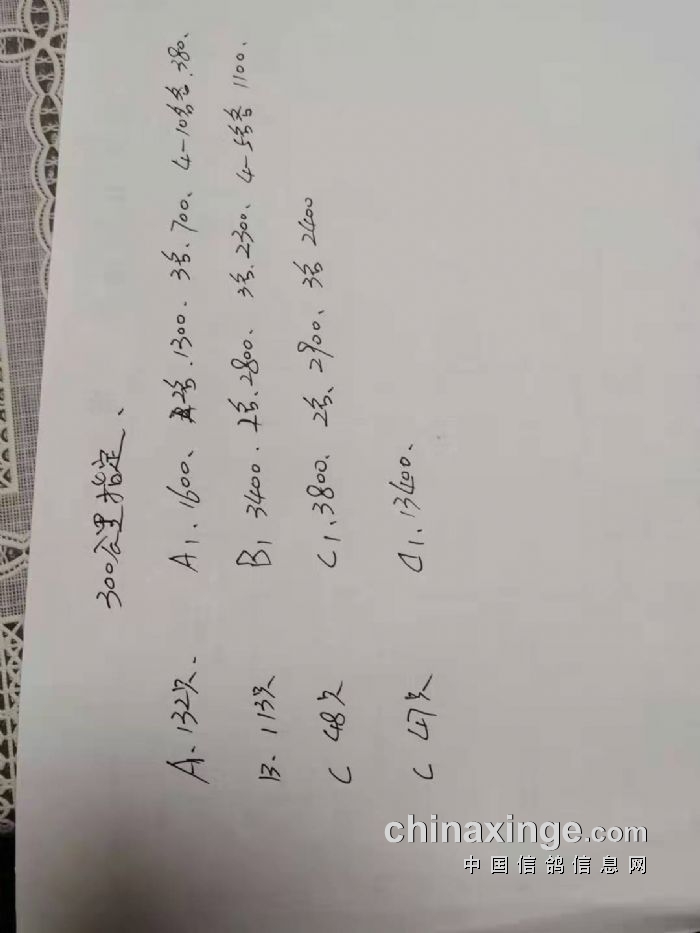 300公里指定、
A、132次、 A1、1600、 2名、1300、3名、700、4-10名各380、
B、113次 B1 3400、2名、2800、3名、2300、4-5名各1100、
C 48次 C1、3800、2名、2900、3名 2400
C 47次 C1、13400、
chinaxinge.com
中国信鸽信息网